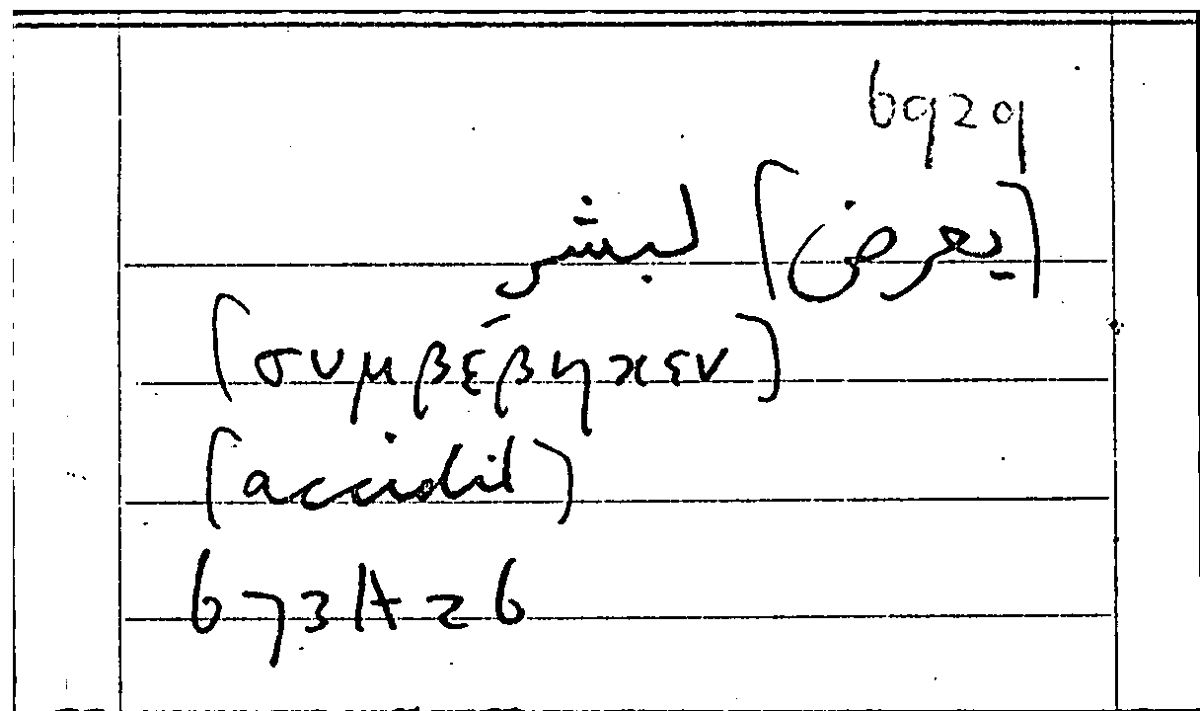 69a29
[يعرض] لبشر
[συμβέβηκεν]
[accidit]
673A26